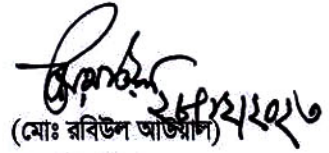 ২৮/১২/২০২৩
(মোঃ রবিউল আউয়াল)